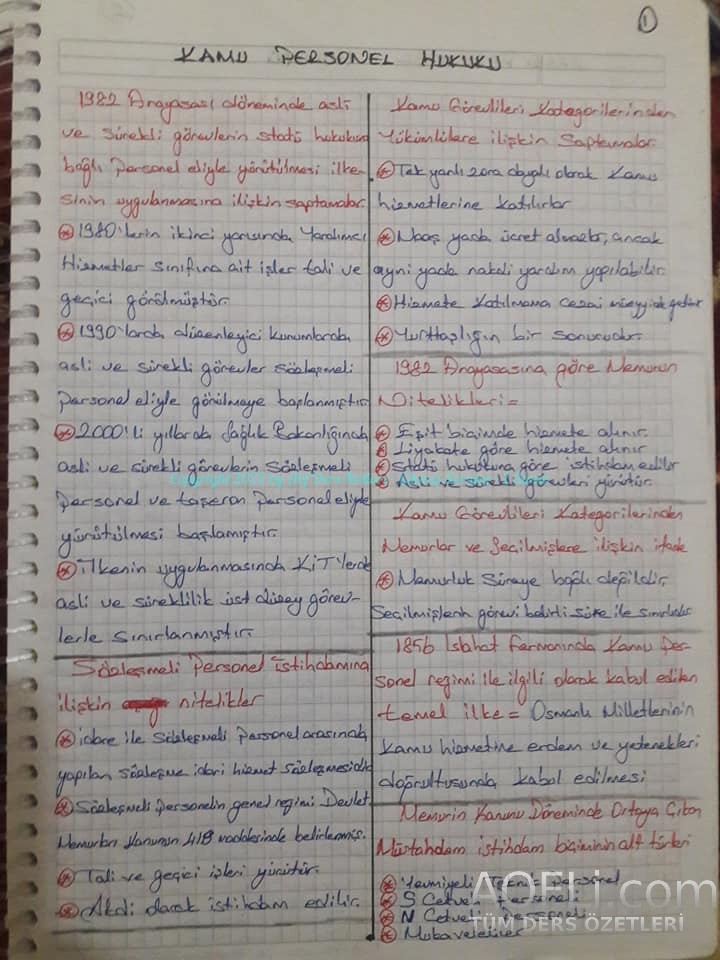 1
KAMU PERSONEL HUKUKU
1982 Anayasası döneminde asli
ve sürekli görevlerin statü hukukuna
bağlı personel eliyle yürütülmesi ilke-
sinin uygulanmasına ilişkin saptamalar
* 1980'lerin ikinci yarısında Yardımcı
Hizmetler sınıfına ait işler tali ve
geçici görülmüştür.
* 1990'larda düzenleyici kurumlarda
asli ve sürekli görevler sözleşmeli
personel eliyle görülmeye başlanmıştır.
* 2000'li yıllarda Sağlık Bakanlığında
asli ve sürekli görevlerin sözleşmeli
personel ve taşeron personel eliyle
yürütülmesi başlamıştır.
* ilkenin uygulanmasında KİT'lerde
asli ve süreklilik üst düzey görev-
lerle sınırlanmıştır.
Sözleşmeli Personel istihdamına
ilişkin nitelikler
* idare ile sözleşmeli personel arasında
yapılan sözleşme idari hizmet sözleşmesidir
* Sözleşmeli personelin genel rejimi Devlet
Memurları Kanunun 4/B maddesinde belirlenmiş.
* Tali ve geçici işleri yürütür.
* Akdi olarak istihdam edilir.
Kamu Görevlileri Kategorilerinden
Yükümlülere ilişkin Saptamalar
* Tek yanlı zora dayalı olarak Kamu
hizmetlerine katılırlar
* Maaş yada ücret almazlar, ancak
ayni yada nakdi yardım yapılabilir.
* Hizmete katılmama cezai müeyyide getirir
* Yurttaşlığın bir sonucudur.
1982 Anayasasına göre Memurun
Nitelikleri=
* Eşit biçimde hizmete alınır.
* Liyakate göre hizmete alınır
* Statü hukukuna göre istihdam edilir
* Asli ve sürekli görevleri yürütür.
Kamu Görevlileri Kategorilerinden
Memurlar ve Seçilmişlere ilişkin ifade
* Memurluk Süreye bağlı değildir,
Seçilmişlerin görevi belirli süre ile sınırlıdır
1856 Islahat fermanında Kamu Per-
sonel rejimi ile ilgili olarak kabul edilen
temel ilke= Osmanlı Milletlerinin
kamu hizmetine erdem ve yetenekleri
doğrultusunda kabul edilmesi
Memurin Kanunu Döneminde Ortaya Çıkan
Müstahdem istihdam biçiminin alt türleri
* Yevmiyeli Teknik Personel
* S Cetveli Personeli
* N Cetveli Personeli
* Mukaveleliler
AOFLi.com
TÜM DERS ÖZETLERİ